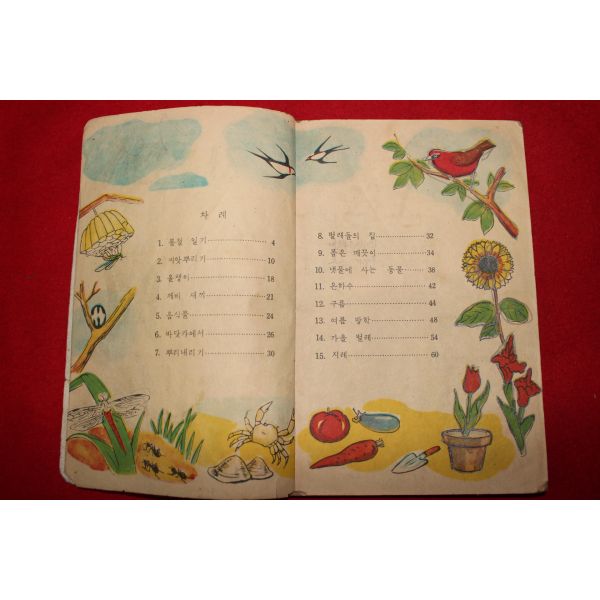 차 례
1. 봄철 일기 4
2. 씨앗뿌리기 10
3. 올챙이 18
4. 제비 새끼 21
5. 음식물 24
6. 바닷가에서 26
7. 뿌리내리기 30
8. 벌레들의 집 32
9. 몸은 깨끗이 34
10. 냇물에 사는 동물 38
11. 은하수 42
12. 구름 44
13. 여름 방학 48
14. 가을 벌레 54
15. 지레 60